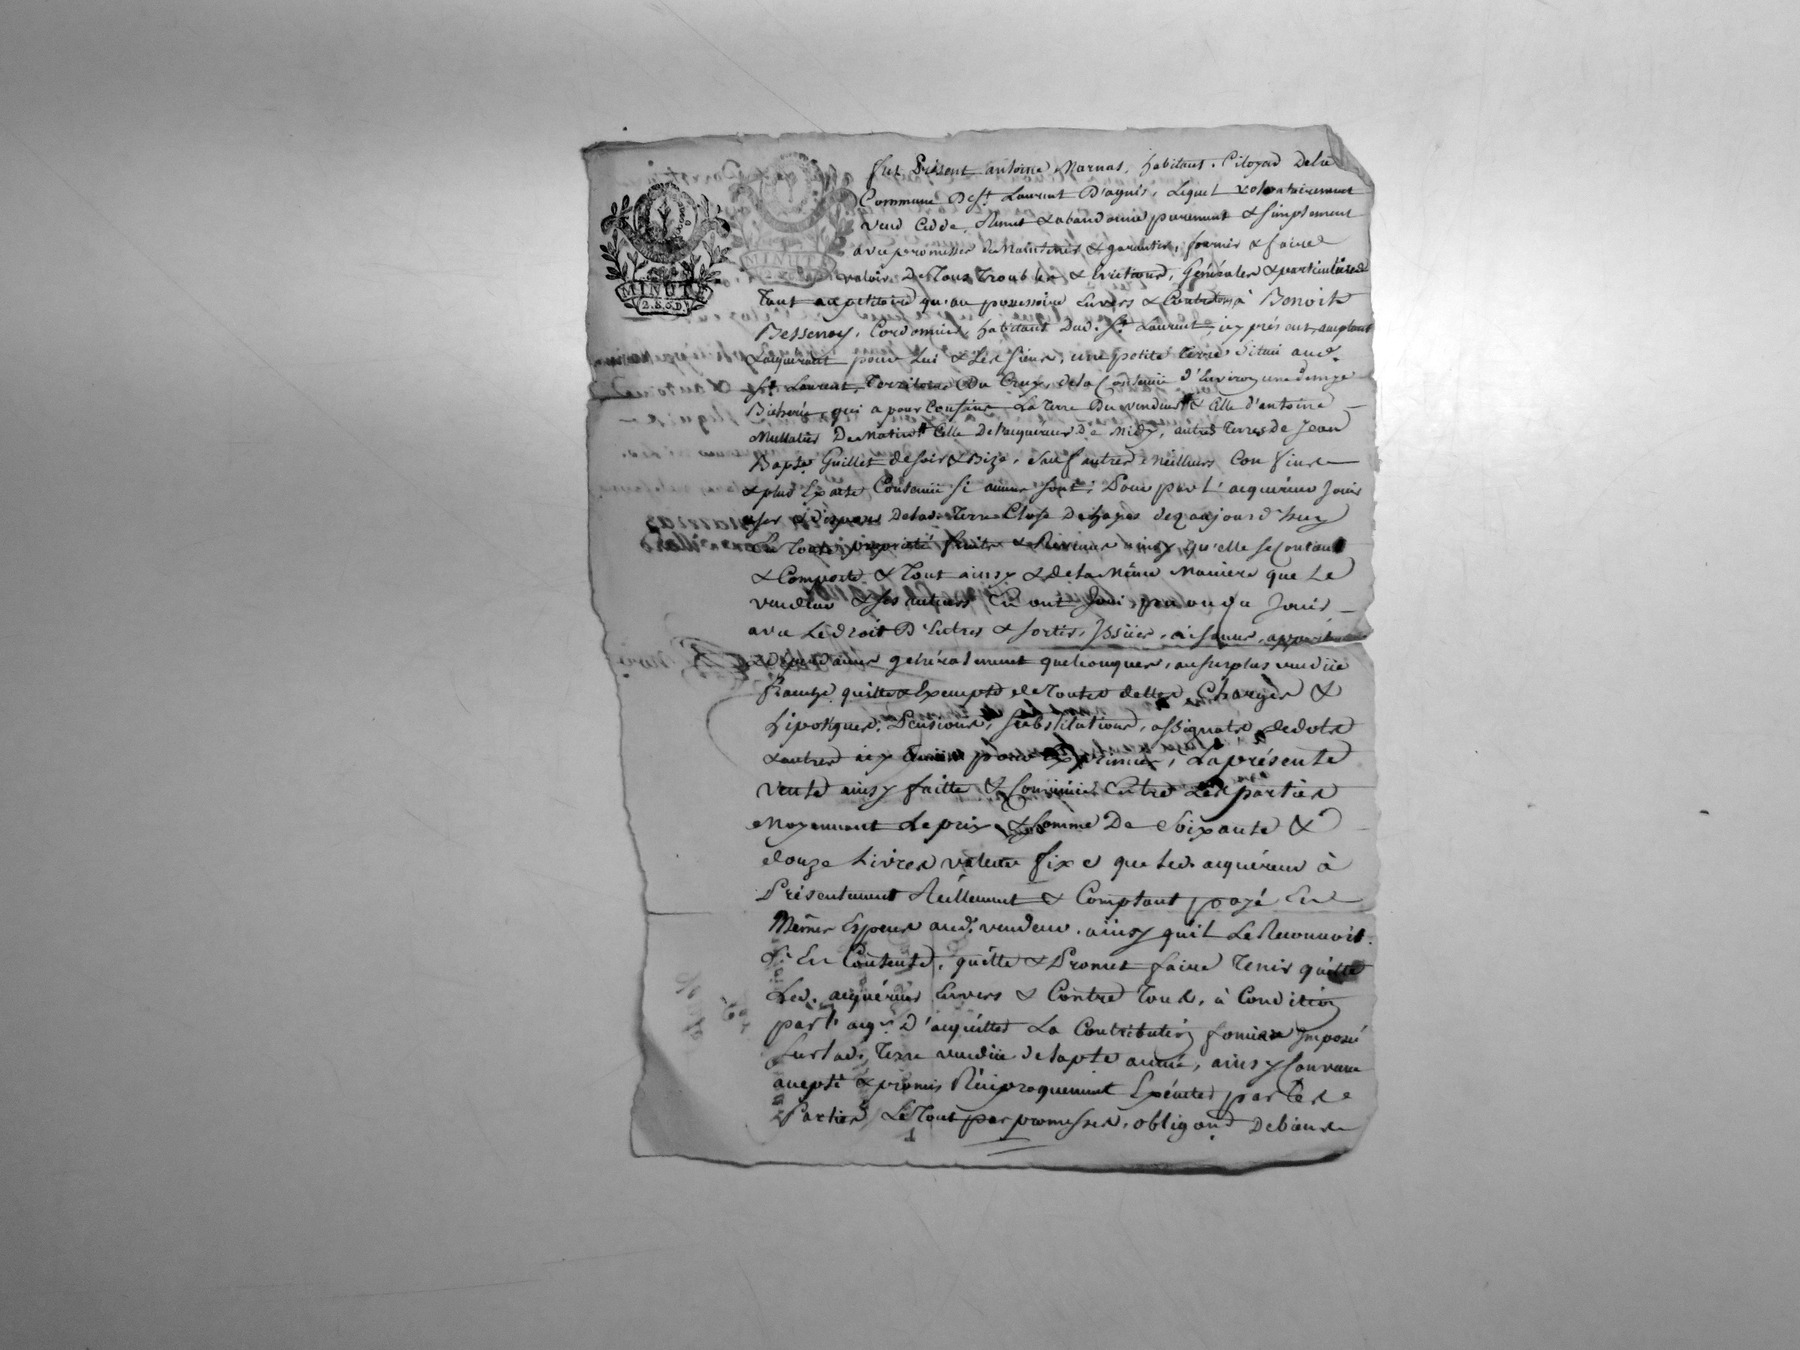 MINUTE
2.S.6.D.
MINUTE
fut Présent antoine Marnas, habitant. Citoyen dela
Commune De St. Laurent D'agnis, Lequel volontairement
vend Cedde, Remet & abandonne purement & simplement
avec promesses de Maintenir & garantir, fournir & faire
valoir, de Tous Troubles & Evictions, Générales & particulières
Tant au petitoire qu'au possessoire Envers & Contre tous à Benoit
Bessenay, Cordonnier, habitant dud. St. Laurent icy présent, acceptant
& acquérant pour Lui & Les siens, une petite Terre Située aud.
St. Laurent, Territoire Du Crux, dela Contenüe d'Environ une demye
Bicherée, qui a pour Confins La Terre Du vendeur & Celle d'antoine
De Matin, Celle De l'acquéreur De Midy, autres Terres de Jean
Bapte. Guillet de soir & Bize, sauf autres Meilleurs Confins
& plus Exacte Contenüe Si aucuns sont; Pour par L'acquéreur Jouir
user & disposer Delad. Terre Close De hayes dez aujourd'huy
En Toute propriété fruits & Revenus ainsy qu'elle se Contient
& Comporte & Tout ainsy & dela Même Manière que Le
vendeur & ses auteurs En ont Joui, pu ou du Jouir
avec Le droit D'Entrer & sortir, Issües, aisances, appartenances
généralement quelconques, au surplus vendüe
franche quitte & Exempte de Toutes dettes Charges &
hipotêques, Pensions, substitutions, assignats de dots
& autres icy pour Exprimés, La présente
vente ainsy faitte & Convenüe Entre Les parties
Moyennant Le prix & somme De soixante &
douze Livres valeur fixe que Led. acquéreur à
Présentement Réellement & Comptant payé En
Mêmes Especes aud. vendeur, ainsy qu'il Le Reconnoit
S'En Contente, quitte & Promet faire Tenir quitte
Led. acquéreur Envers & Contre Tous, à Condition
par l'acqr. D'acquitter La Contribution fonciere Imposée
Sur lad. Terre vendüe de la pte année, ainsy Convenu
accepté & promis Réciproquement Exécuter par Les
Parties Le Tout par promesses, obligaond De biens
1